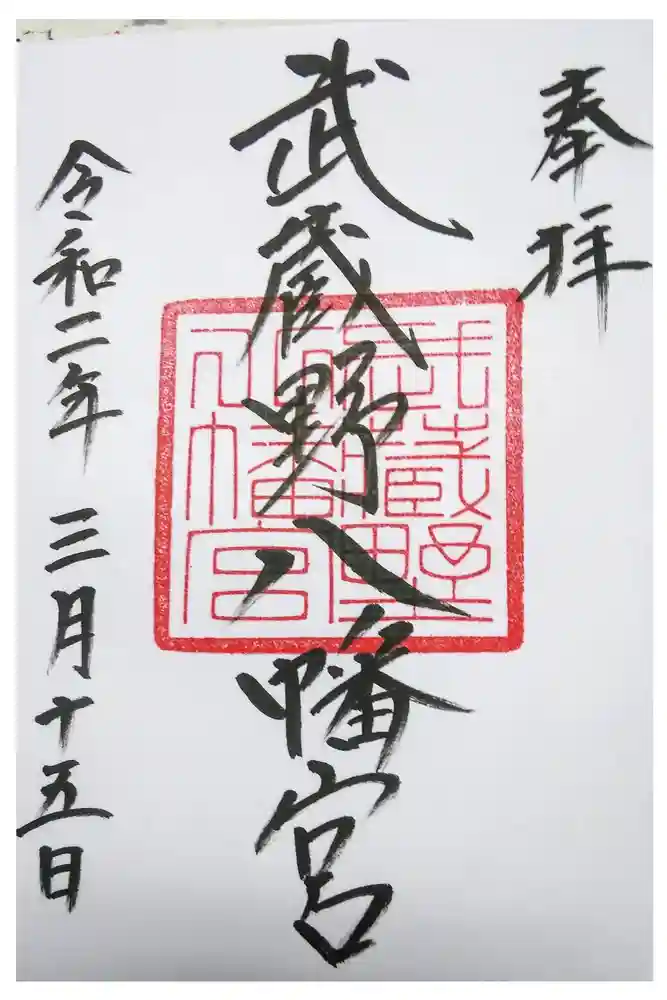 奉拝
武蔵野八幡宮
武蔵野
八幡宮
令和二年 三月十五日